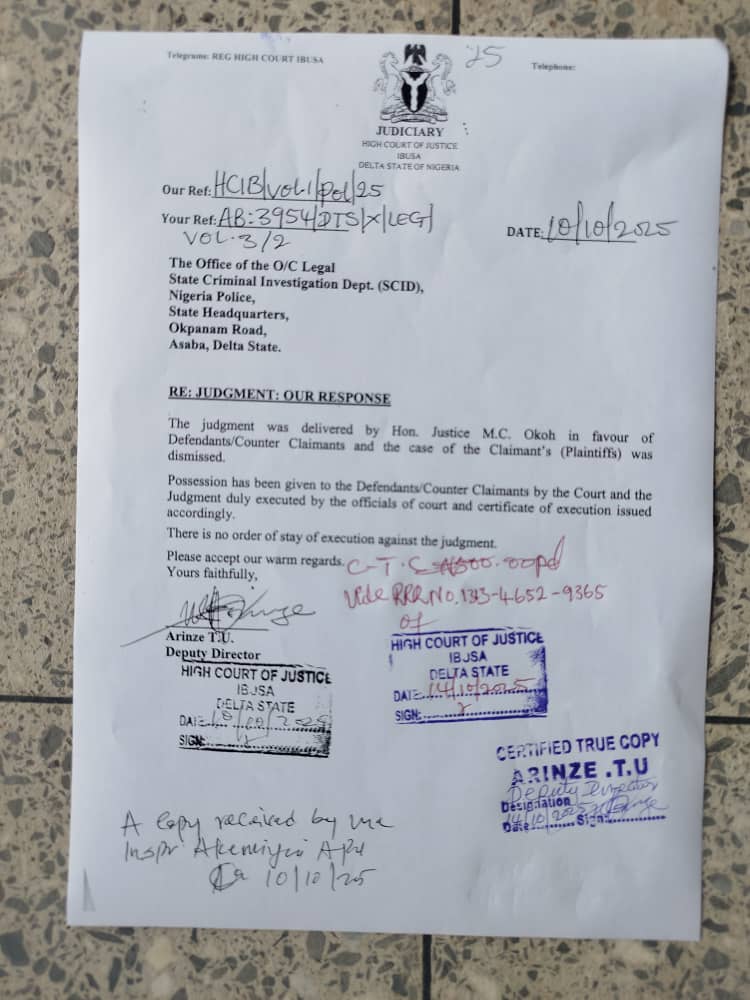 Telegrams: REG HIGH COURT IBUSA
25
Telephone:
JUDICIARY
HIGH COURT OF JUSTICE
IBUSA
DELTA STATE OF NIGERIA
Our Ref: HCIB/VOL.1/POL/25
Your Ref: AB:3954/DTS/X/LEG/
VOL.3/2
DATE: 10/10/2025
The Office of the O/C Legal
State Criminal Investigation Dept. (SCID),
Nigeria Police,
State Headquarters,
Okpanam Road,
Asaba, Delta State.
RE: JUDGMENT: OUR RESPONSE
The judgment was delivered by Hon. Justice M.C. Okoh in favour of
Defendants/Counter Claimants and the case of the Claimant's (Plaintiffs) was
dismissed.
Possession has been given to the Defendants/Counter Claimants by the Court and the
Judgment duly executed by the officials of court and certificate of execution issued
accordingly.
There is no order of stay of execution against the judgment.
Please accept our warm regards.
Yours faithfully,
C.T.C ₦500.00pd
Vide RRR No. 1313-4652-9365
of
Arinze T.U.
Deputy Director
HIGH COURT OF JUSTICE
IBUSA
DELTA STATE
DATE 10/10/2025
SIGN:
HIGH COURT OF JUSTICE
IBUSA
DELTA STATE
DATE 14/10/2025
SIGN:
CERTIFIED TRUE COPY
ARINZE .T.U
Deputy Director
Designation
14/10/2025
Date Sign:
A copy received by me
Inspr
10/10/25